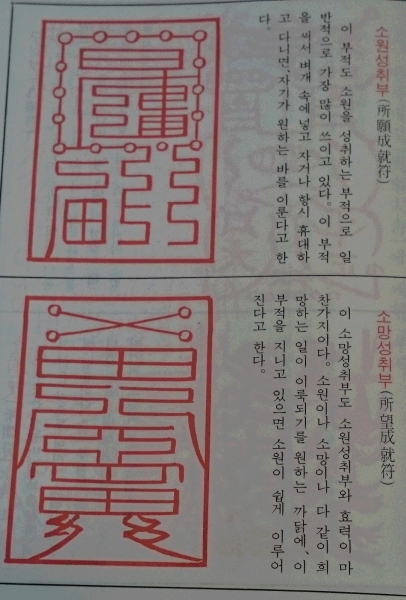 소원성취부(所願成就符)
이 부적도 소원을 성취하는 부적으로 일
반적으로 가장 많이 쓰이고 있다. 이 부적
을 써서 벼개 속에 넣고 자거나 항시 휴대하
고 다니면, 자기가 원하는 바를 이룬다고 한
다.
소망성취부(所望成就符)
이 소망성취부도 소원성취부와 효력이 마
찬가지이다. 소원이나 소망이나 다 같이 희
망하는 일이 이룩되기를 원하는 까닭에, 이
부적을 지니고 있으면 소원이 쉽게 이루어
진다고 한다.